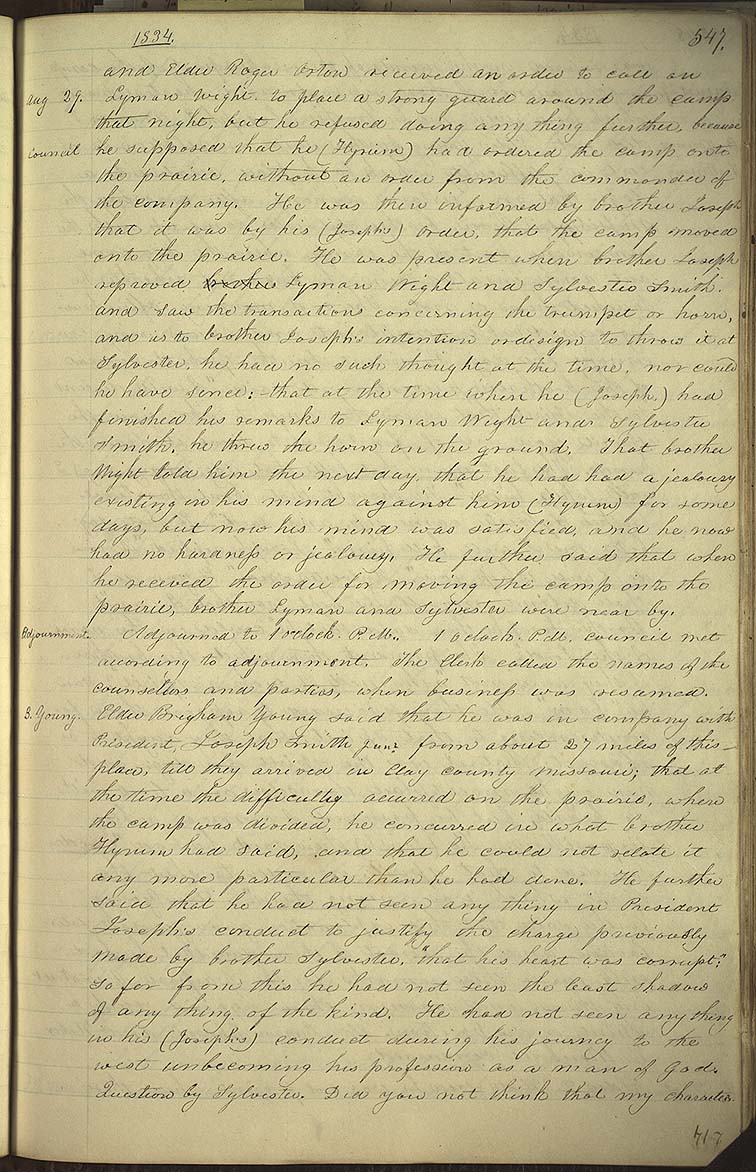 1834.
547.
and Elder Roger Orton received an order to call on
Aug 29.
Lyman Wight to place a strong guard around the camp
that night, but he refused doing any thing further, because
Council
he supposed that he (Hyrum) had ordered the camp onto
the prairie, without an order from the commander of
the company. He was then informed by brother Joseph
that it was by his (Josephs) order, that the camp moved
onto the prairie. He was present when brother Joseph
reproved brother Lyman Wight and Sylvester Smith.
and saw the transaction concerning the trumpet or horn,
and as to brother Joseph's intention or design to throw it at
Sylvester, he had no such thought at the time, nor could
he have since; that at the time when he (Joseph,) had
finished his remarks to Lyman Wight and Sylvester
Smith, he threw the horn on the ground. That brother
Wight told him the next day that he had had a jealousy
existing in his mind against him (Hyrum) for some
days, but now his mind was satisfied, and he now
had no hardness or jealousy. He further said that when
he received the order for moving the camp onto the
prairie, brother Lyman and Sylvester were near by.
Adjournment.
Adjourned to 1 o'clock. P.M. 1 o'clock. P.M. council met
according to adjournment. The Clerk called the names of the
counsellors and parties, when business was resumed.
B. Young.
Elder Brigham Young said that he was in company with
President, Joseph Smith junr from about 27 miles of this
place, till they arrived in Clay county Missouri; that at
the time the difficulty occurred on the prairie, when
the camp was divided, he concurred in what brother
Hyrum had said, and that he could not relate it
any more particular than he had done. He further
said that he had not seen any thing in President
Joseph's conduct to justify the charge previously
made by brother Sylvester, "that his heart was corrupt;"
so far from this he had not seen the least shadow
of any thing of the kind. He had not seen any thing
in his (Joseph's) conduct during his journey to the
west unbecoming his profession as a man of God.
Question by Sylvester. Did you not think that my character